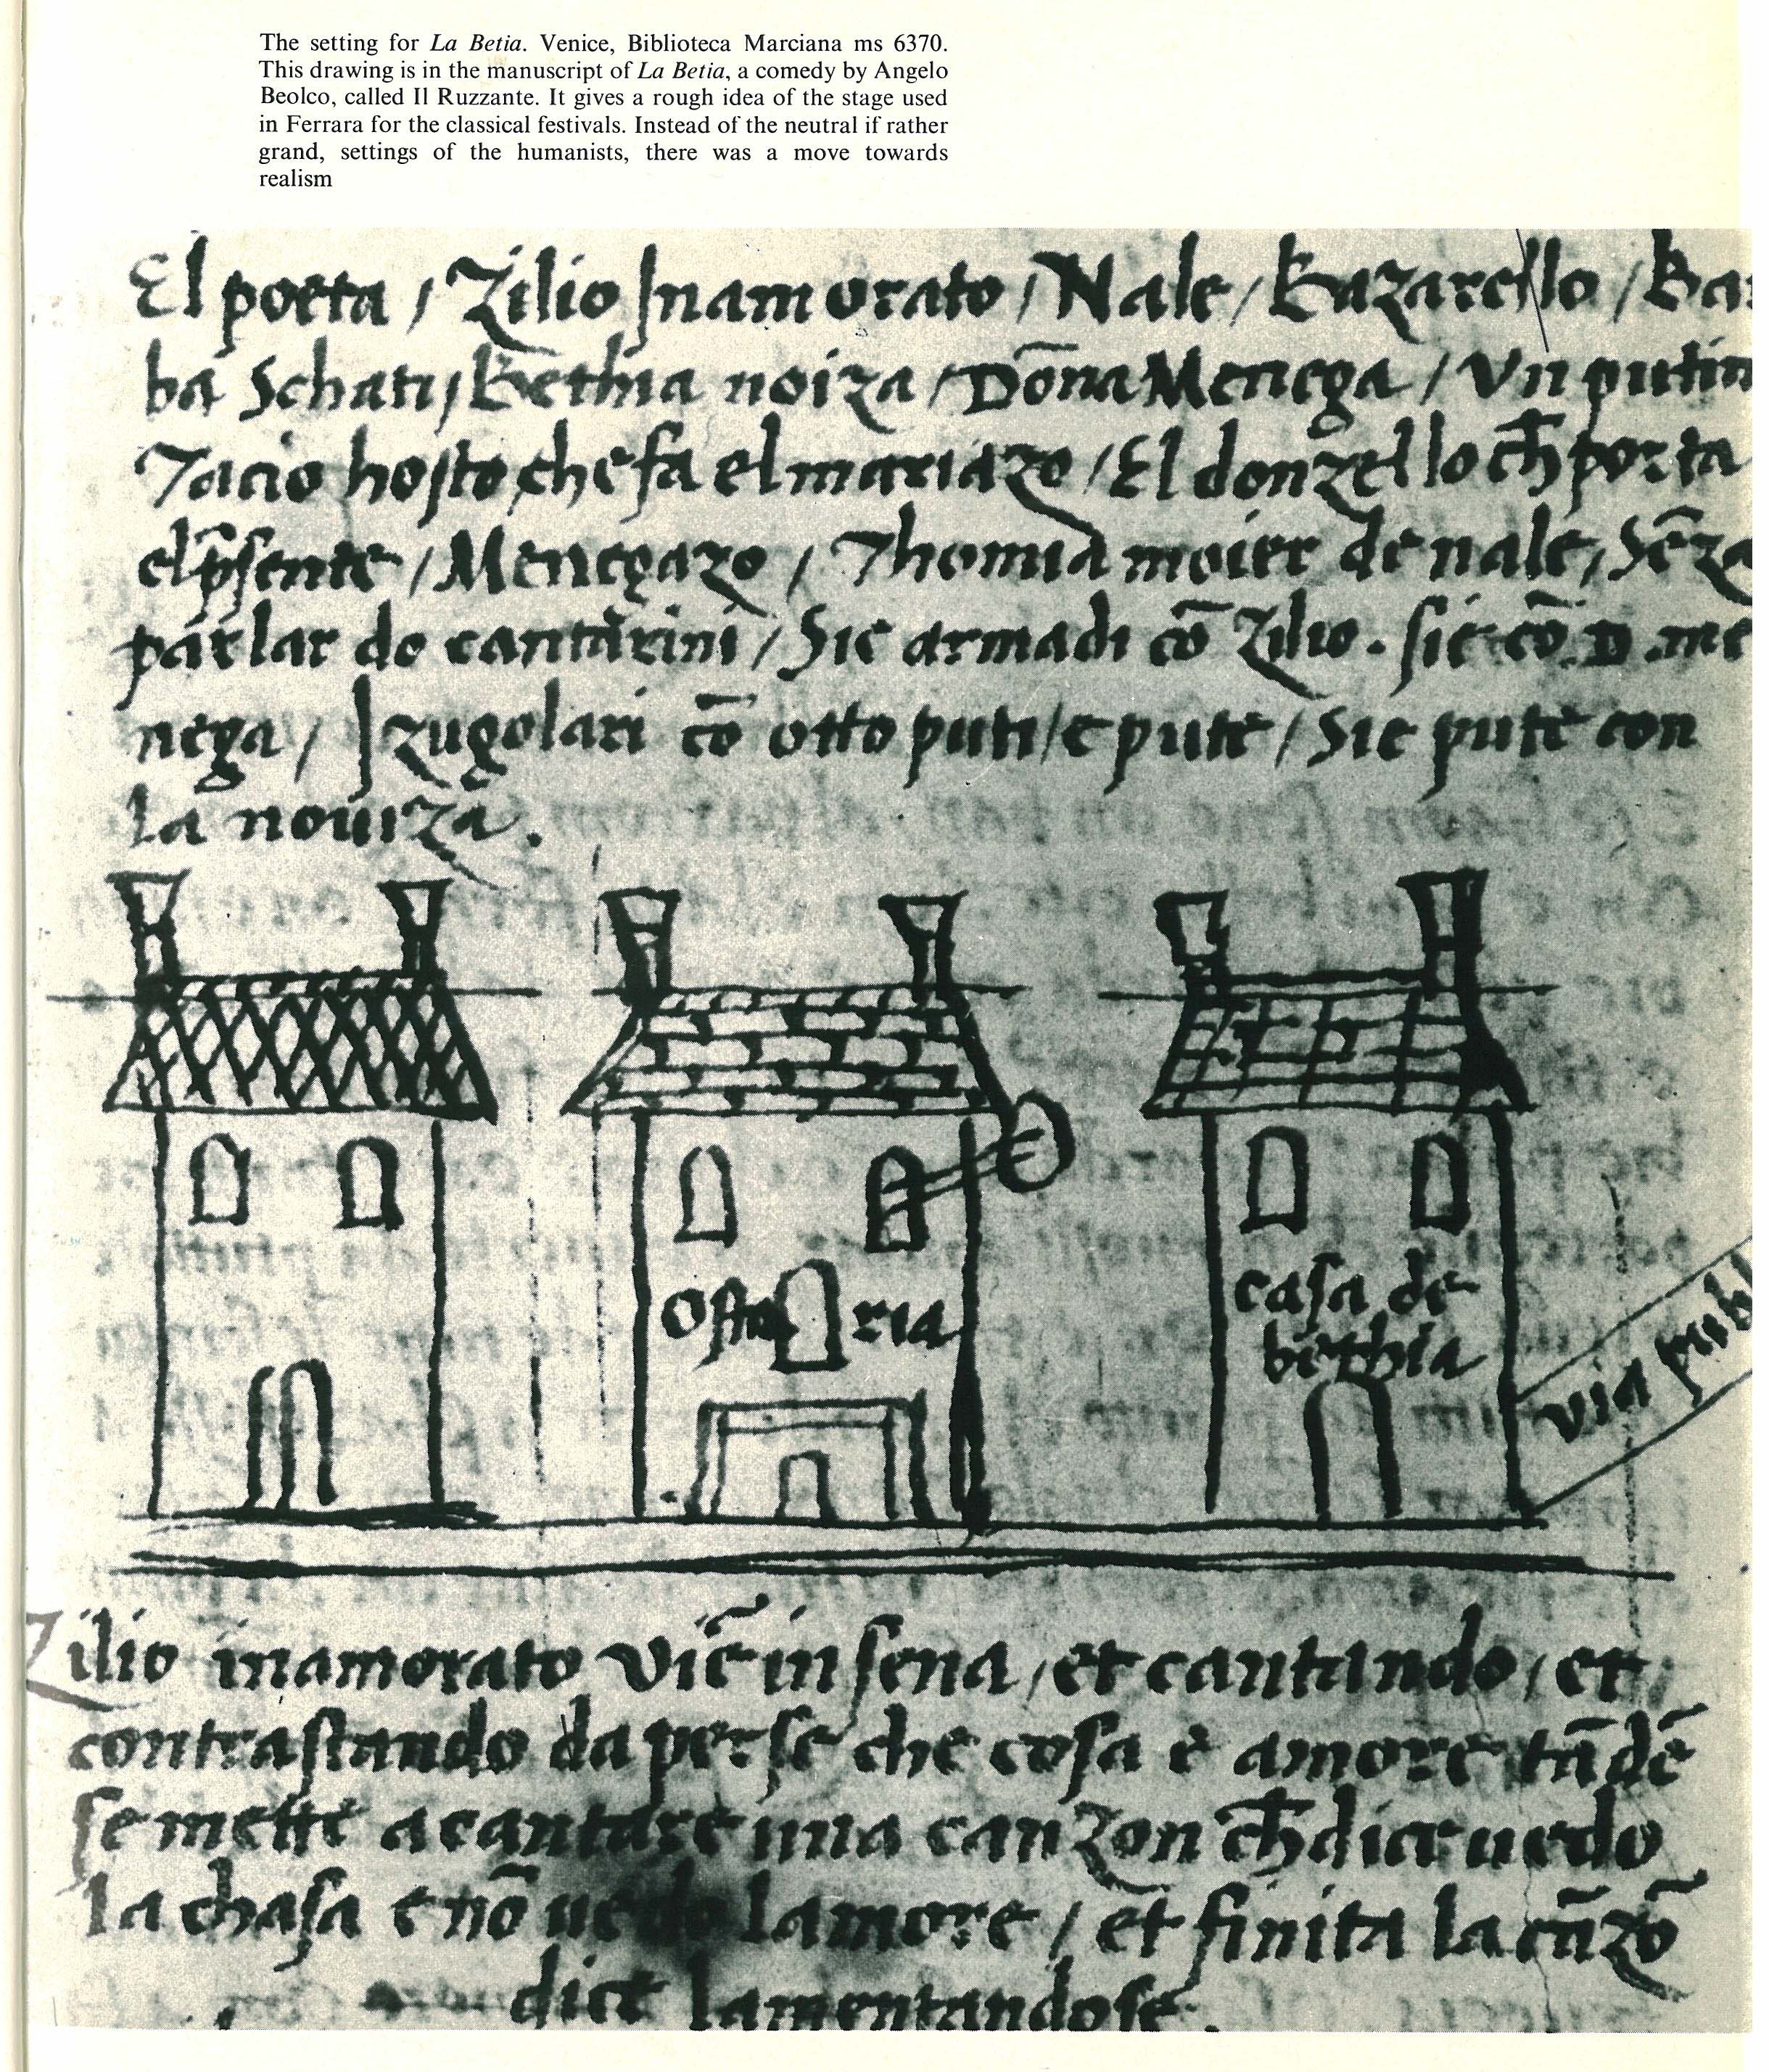 The setting for La Betia. Venice, Biblioteca Marciana ms 6370.
This drawing is in the manuscript of La Betia, a comedy by Angelo
Beolco, called Il Ruzzante. It gives a rough idea of the stage used
in Ferrara for the classical festivals. Instead of the neutral if rather
grand, settings of the humanists, there was a move towards
realism
El poeta / Zilio Inamorato / Nale / Bazarello / Ba
ba Schati / Bethia noiza / Dōna Menega / Vn putin
Tacio hosto che fa el mariazo / El donzello ch̄ porta
el p̄sente / Menegazo / Thomia moier de nale, Sēza
parlar do cantarini / Sie armadi cō Zilio. sie cō. D. me
nega / I zugolari cō otto puti / e pute / Sie pute con
la nouiza.
Osta ria
casa de
bethia
via publ
Zilio inamorato viē in sena, et cantando, et
contrastando da per se che cosa è amore tādē
se mette a cantare una canzon ch̄ dice uedo
la chasa e nō uedo lamore / et finita la cāzō
dice lamentandose.